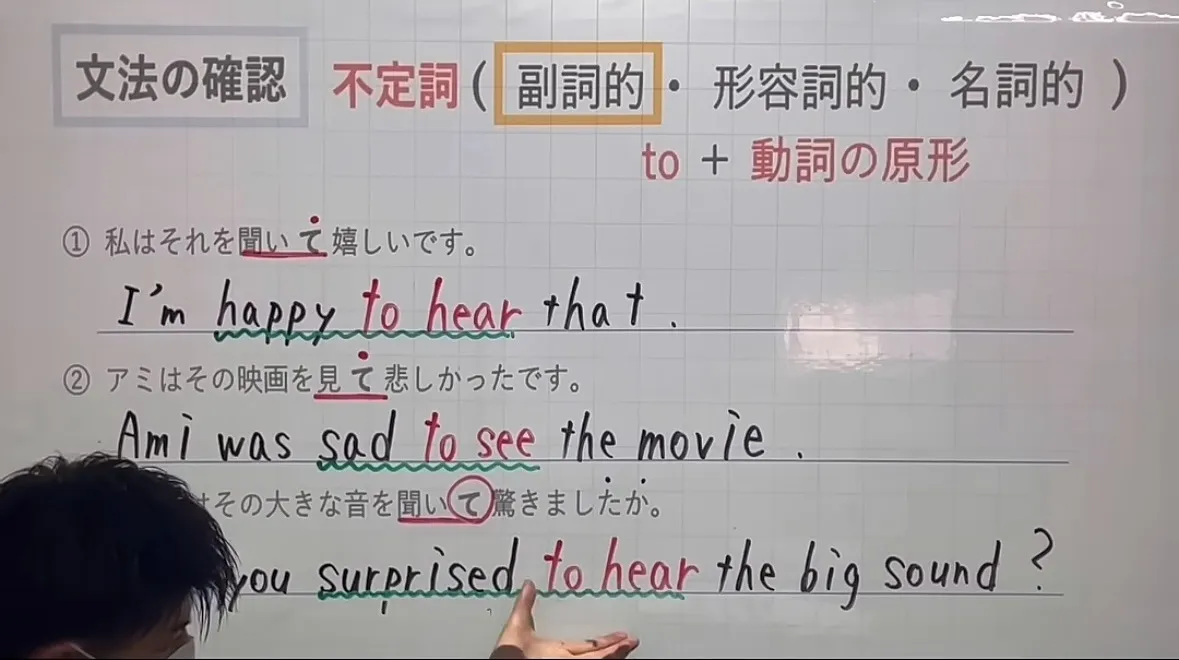 文法の確認 不定詞( 副詞的・形容詞的・名詞的 )
to + 動詞の原形
① 私はそれを聞いて嬉しいです。
I'm happy to hear that.
② アミはその映画を見て悲しかったです。
Ami was sad to see the movie.
はその大きな音を聞いて驚きましたか。
you surprised to hear the big sound?